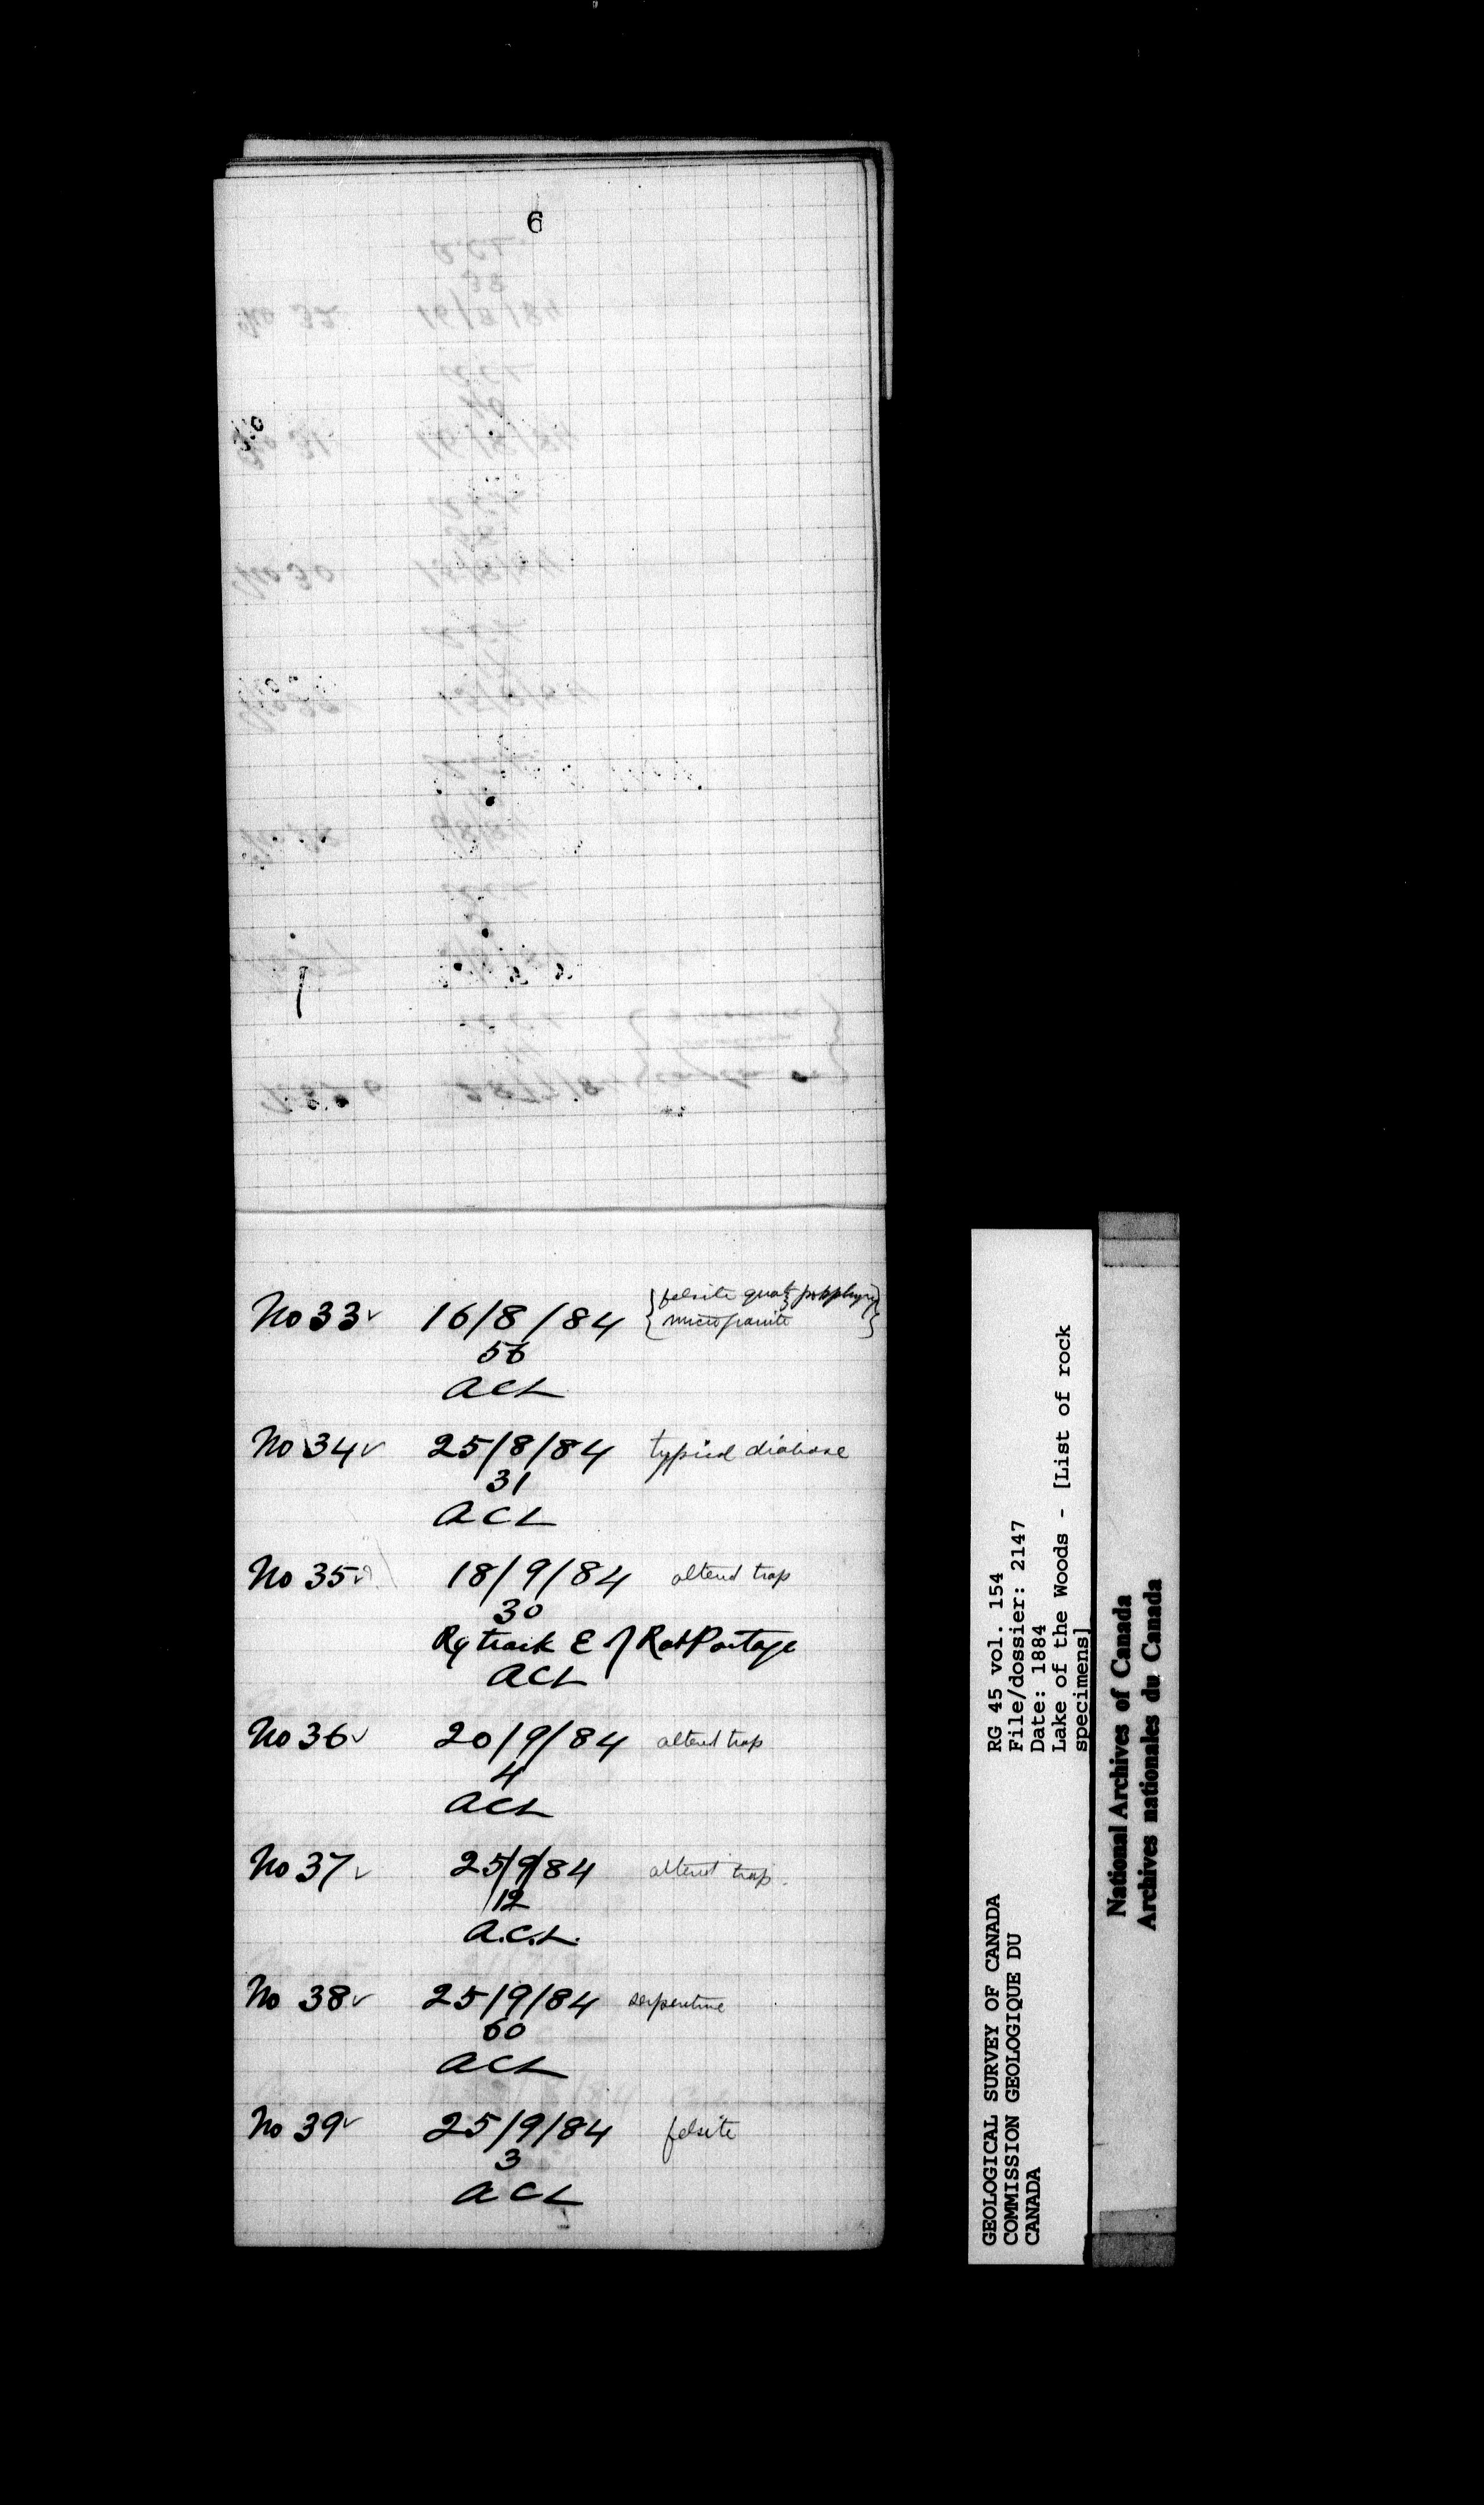 6
No 33 ✓ 16/8/84 {felsite quartz porphyry
microgranite}
56
ACL
No 34 ✓ 25/8/84 typical diabase
31
ACL
No 35 ✓ 18/9/84 altered trap
30
Ry track E of Rat Portage
ACL
No 36 ✓ 20/9/84 altered trap
4
ACL
No 37 ✓ 25/9/84 altered trap.
12
A.C.L.
No 38 ✓ 25/9/84 serpentine
60
ACL
No 39 ✓ 25/9/84 felsite
3
ACL
GEOLOGICAL SURVEY OF CANADA
COMMISSION GEOLOGIQUE DU
CANADA
RG 45 vol. 154
File/dossier: 2147
Date: 1884
Lake of the Woods - [List of rock
specimens]
National Archives of Canada
Archives nationales du Canada